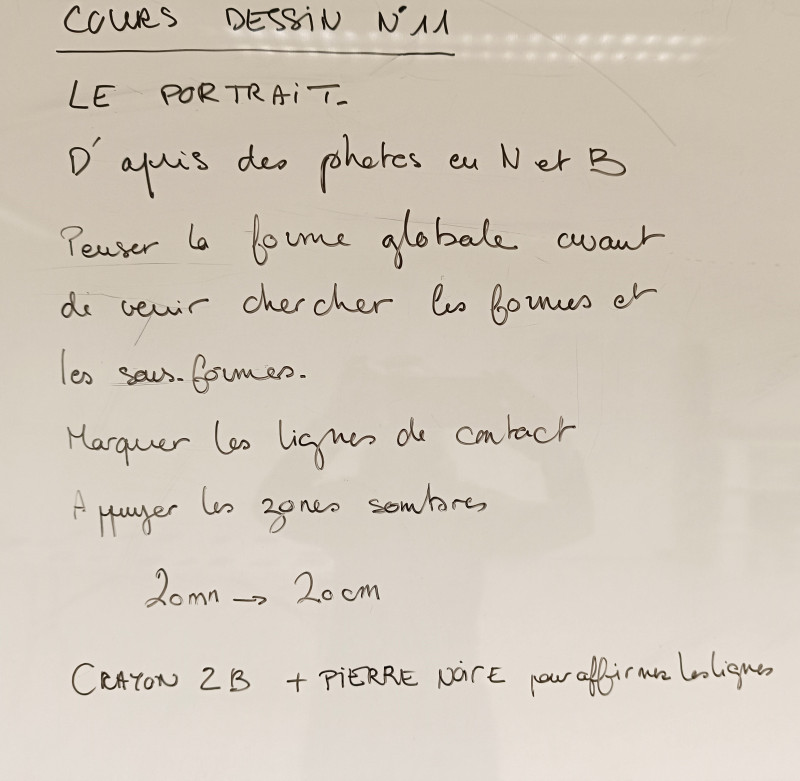 COURS DESSIN N°11
LE PORTRAIT.
D'après des photos en N et B
Penser la forme globale avant
de venir chercher les formes et
les sous-formes.
Marquer les lignes de contact
Appuyer les zones sombres
20mn → 20cm
CRAYON 2B + PIERRE NOIRE pour affirmer les lignes